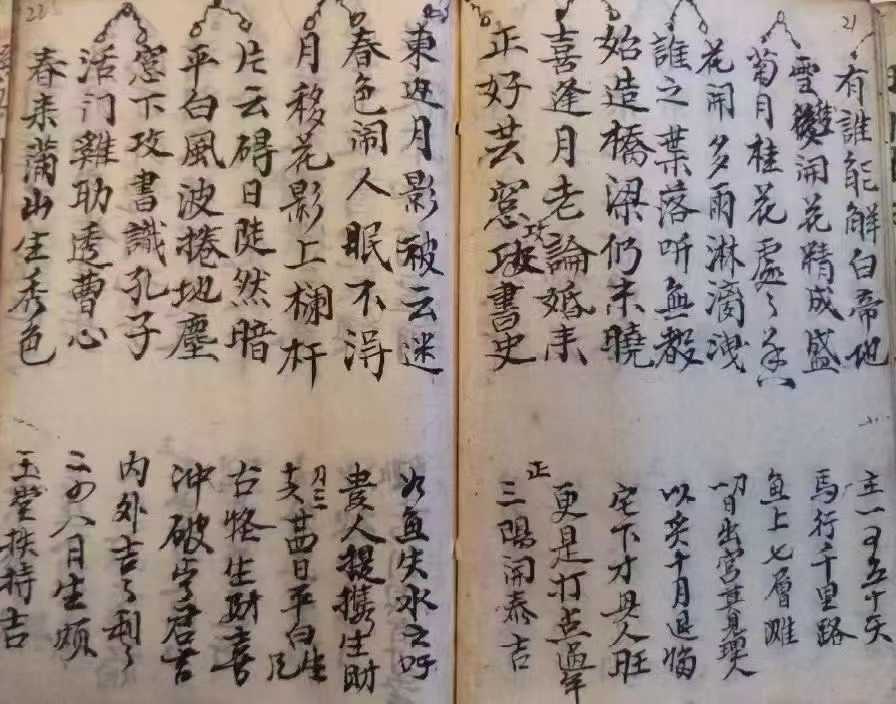 21
有誰能解白帝地
雪開花精成盛
菊月桂花處々香
花開多雨淋滴洩
誰之葉落听無教
始造橋梁仍未曉
喜逢月老論婚未
正好共窓攻書史
主一
馬行千里路
魚上七層灘
日出宮莫見人
以十月退
宅下才與人旺
更是打点過年
正三陽開泰吉
22
東边月影被云迷
春色闹人眠不淂
月移花影上欄杆
片云碍日陡然暗
平白風波捲地塵
窓下攻書識孔子
活门雞助透曹心
春来蒲山生秀色
如魚失水之吁
貴人提携生財
廿四日平白生
古怪生財喜
冲破君吉
内外吉々利々
二四八月生煩
玉堂扶持吉